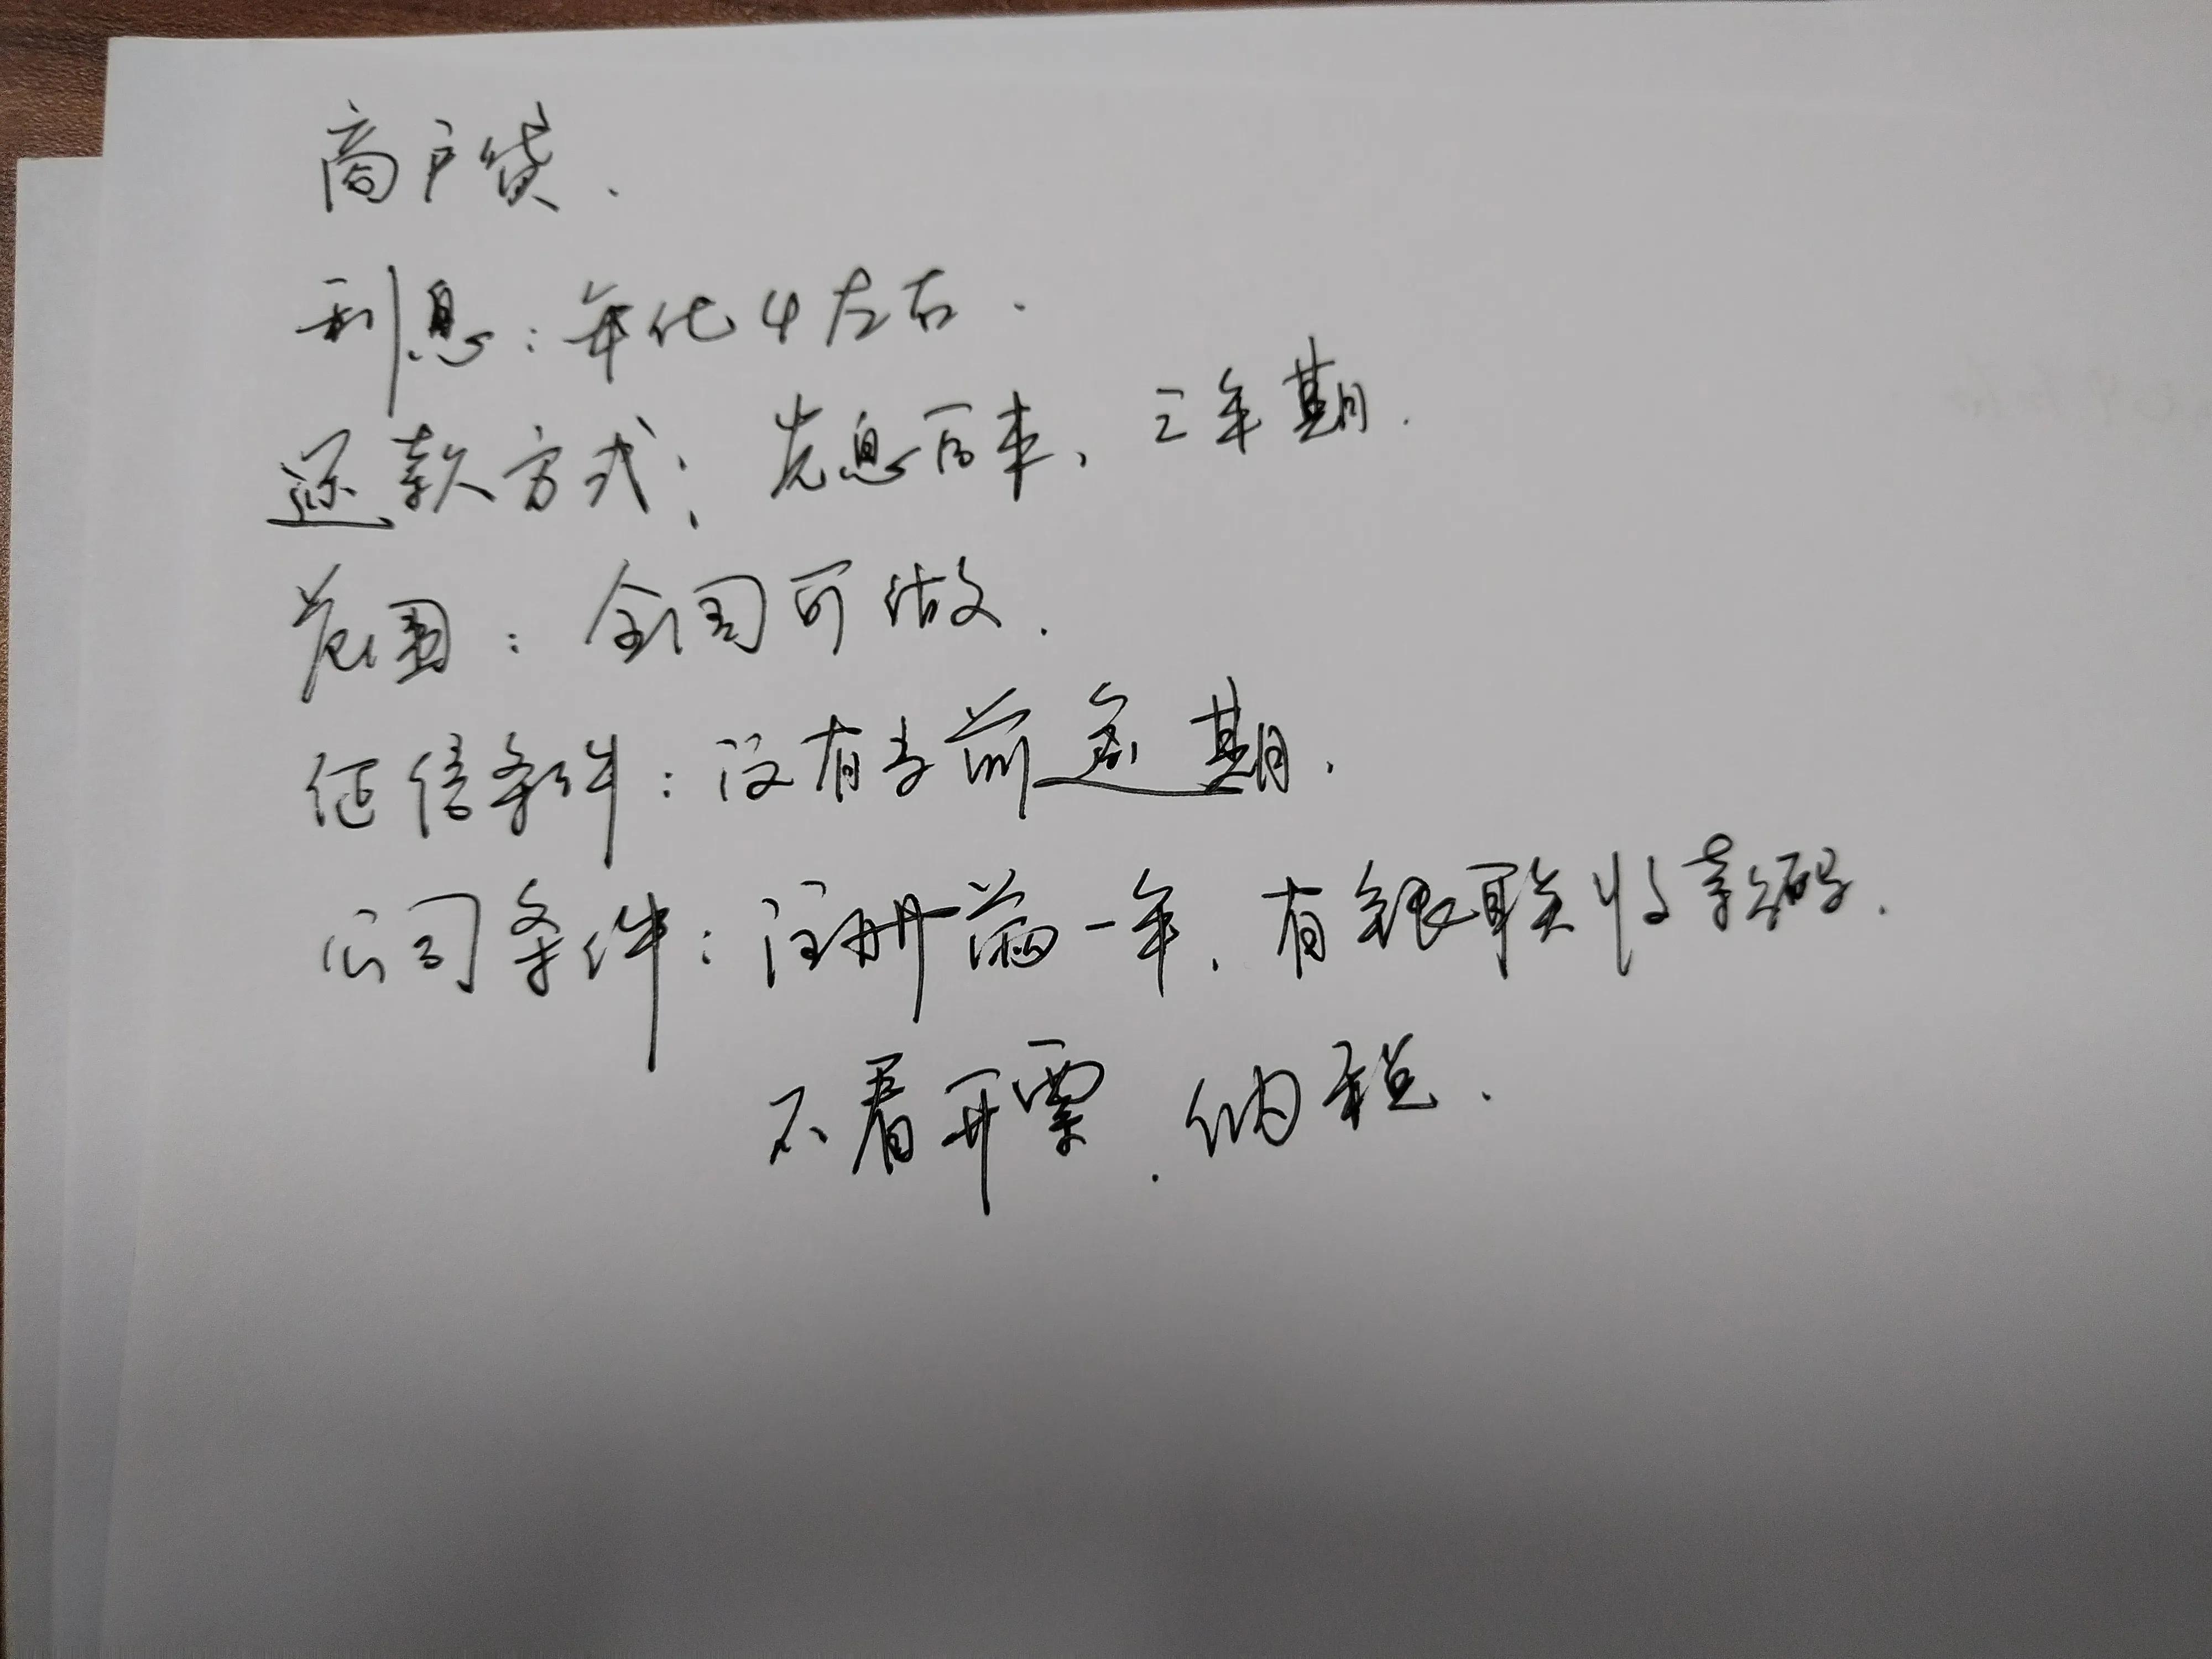 商户贷.
利息:年化4左右.
还款方式:先息后本、三年期.
范围:全国可做.
征信条件:没有当前逾期.
公司条件:注册满一年.有银联收款码.
不看开票.纳税.